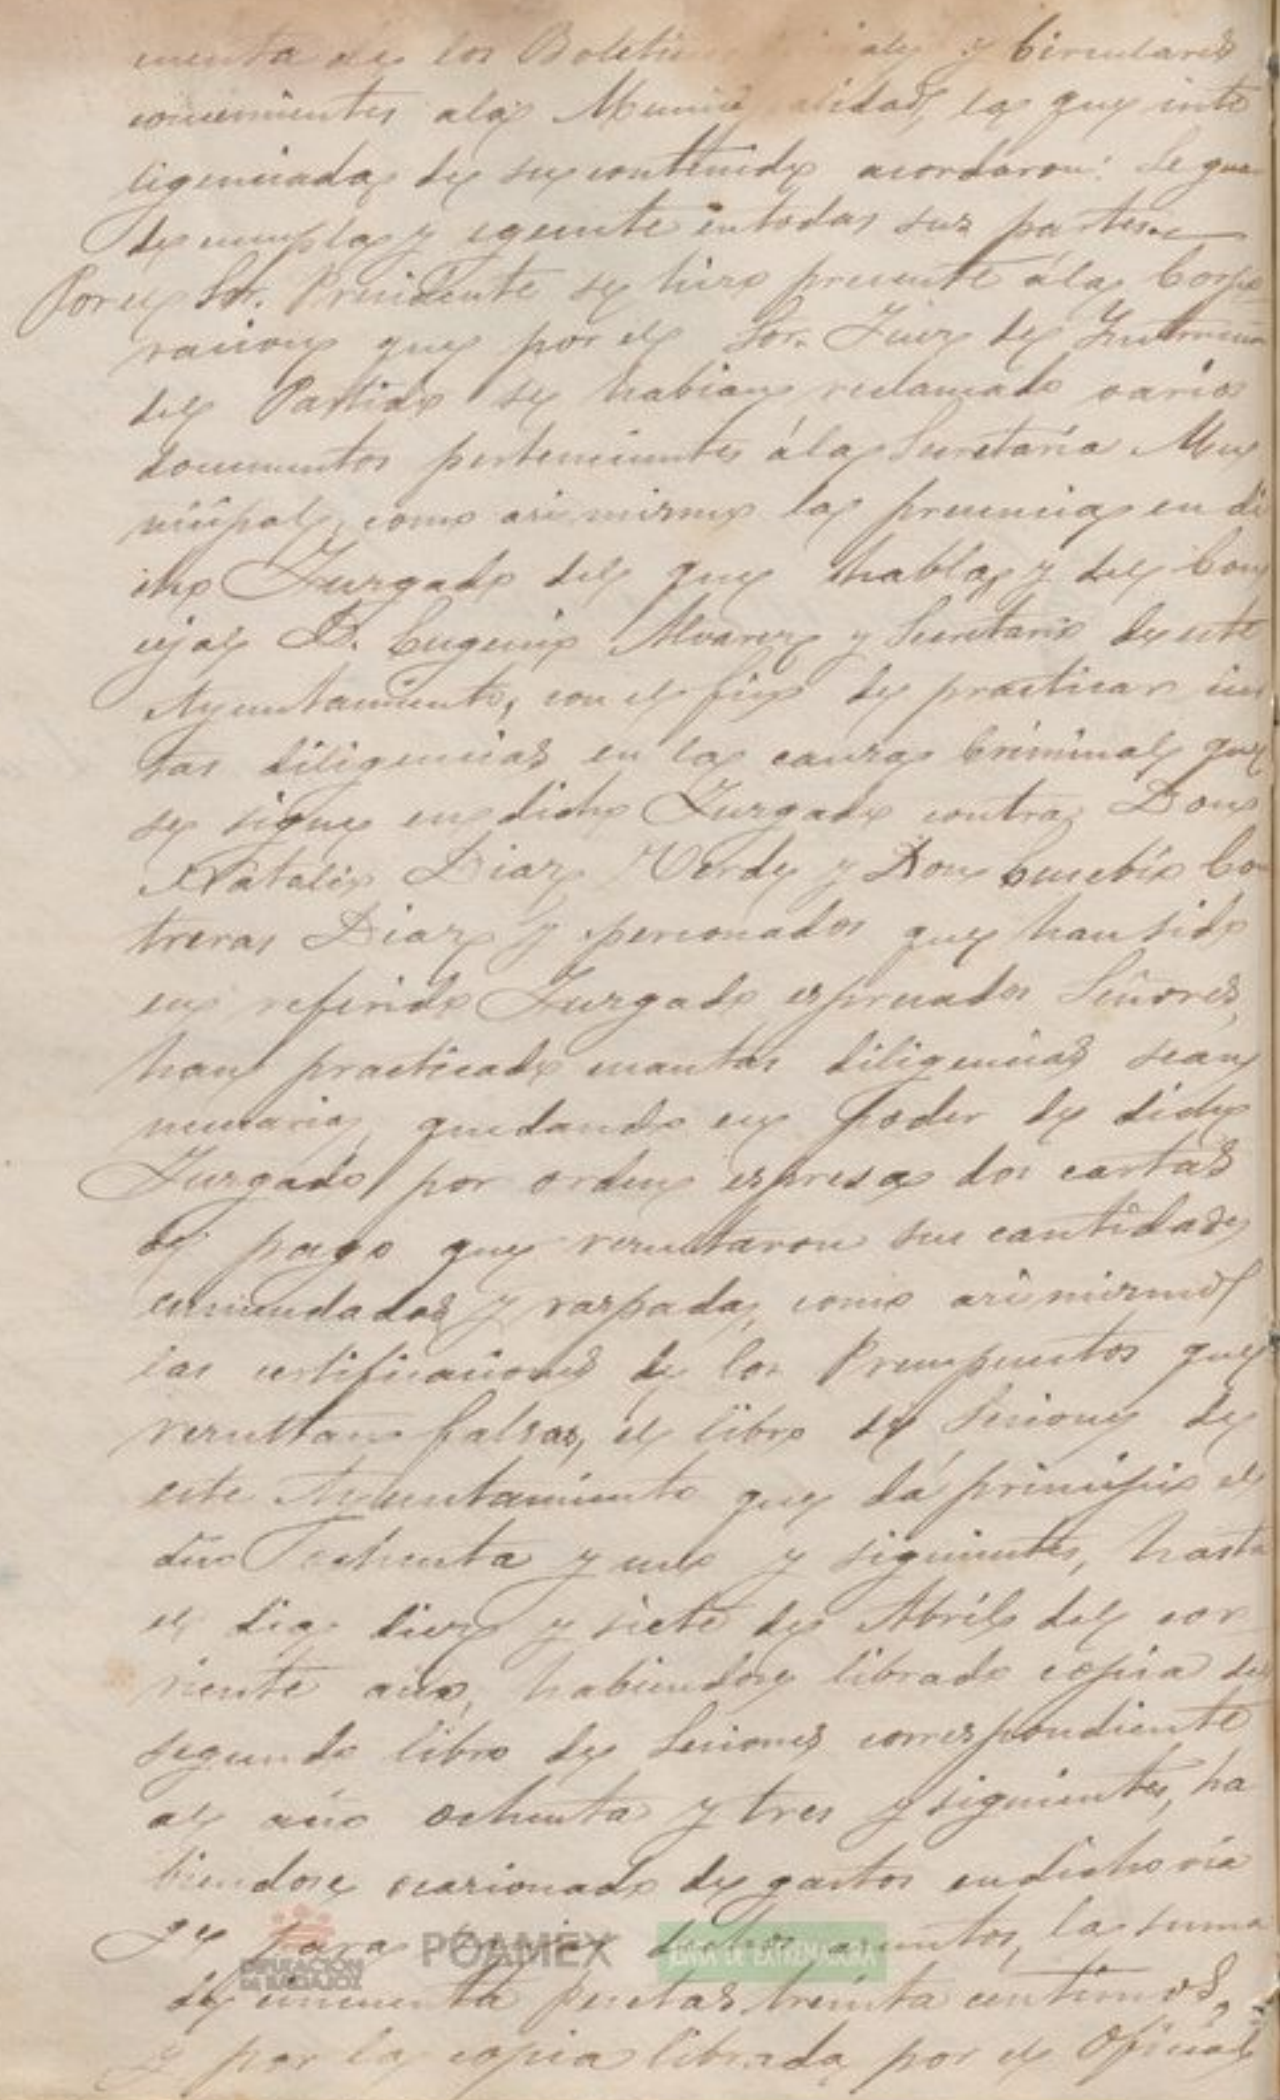 cuenta de los Boletin ales y Circulares
concernientes ala Munici alidad, la que inte
ligenciada de su contenido acordaron: Se guar
de cumpla y egecute entodas sus partes.
Por el Sor. Presidente se hizo presente ála Corpo
racion que por el Sor. Juez de Instruccion
del Partido se habian reclamado varios
documentos pertenecientes ála Secretaría Mu
nicipal, como asi mismo la presencia en di
cho Juzgado del que habla, y del Con
cejal D. Eugenio Alvarez y Secretario de este
Ayuntamiento, con el fin de practicar cier
tas diligencias en la causa Criminal que
se sigue en dicho Juzgado contra Don
Natalio Diaz Verde y Don Eusebio Con
treras Diaz y personados que han sido
en referido Juzgado espresados Señores,
han practicado cuantas diligencias sean
necesarias, quedando en Poder de dicho
Juzgado por orden espresa dos cartas
de pago que resultaron sus cantidades
enmendadas y raspadas, como asi mismo
las certificaciones de los Presupuestos que
resultan falsas, el libro de Sesiones de
este Ayuntamiento que dá principio el
año ochenta y uno y siguientes, hasta
el dia diez y siete de Abril del cor
riente año, habiendose librado copia del
segundo libro de Sesiones correspondiente
al año ochenta y tres y siguientes, ha
biendose ocasionado de gastos en dicho via
ge para dichos asuntos, la suma
de cincuenta pesetas treinta centimos,
y por la copia librada por el Oficial
DIPUTACIÓN DE BADAJOZ
POAMEX
JUNTA DE EXTREMADURA